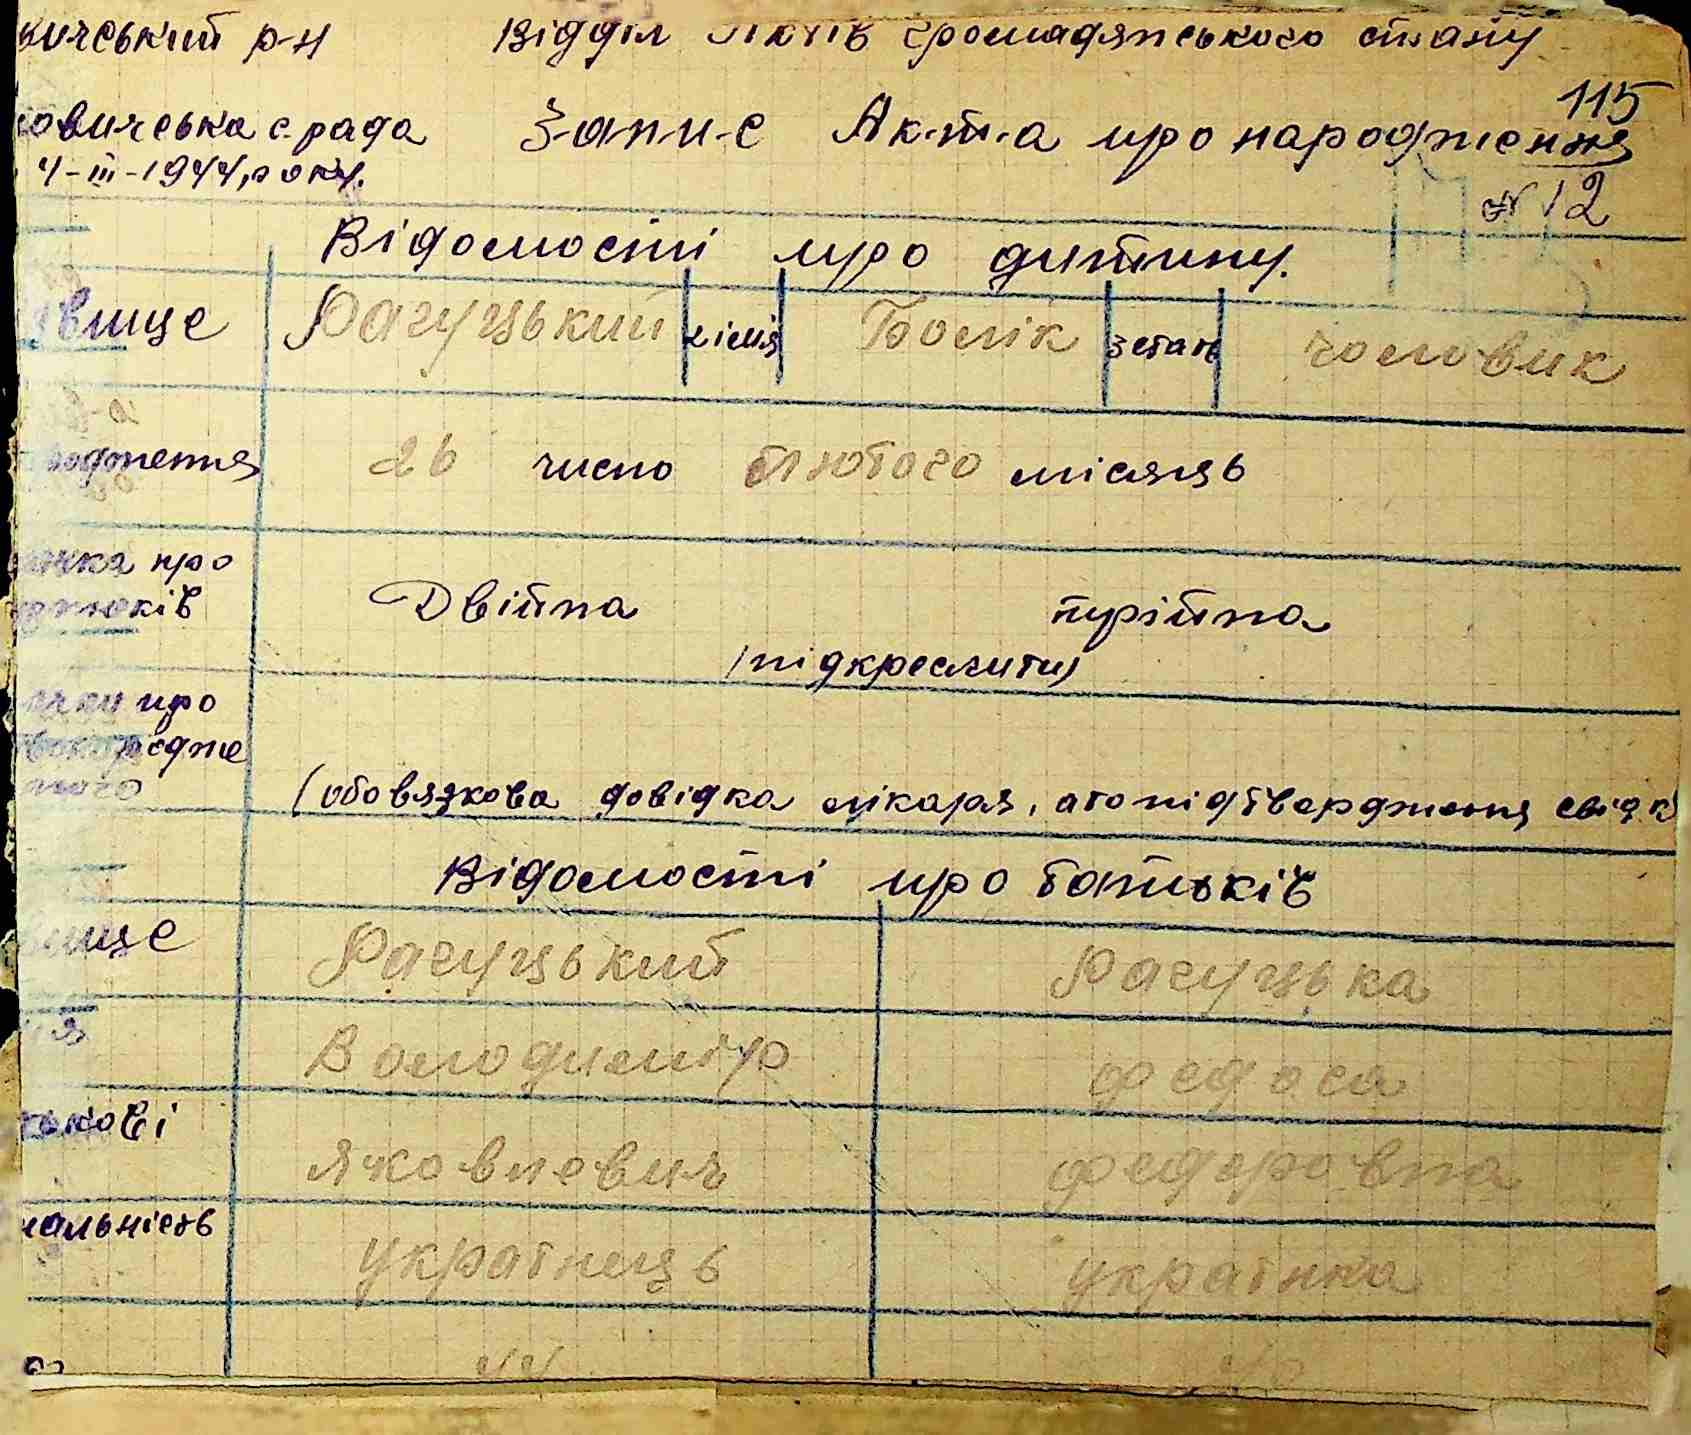 вичський р-н Відділ Актів громадянського стану
115
овичська с. рада Запис Акта про народження
4-III-1944 року.
№ 12
Відомості про дитину.
звище Рагуцький імя Болік стать чоловик
родження 26 число лютого місяць
про Двійна трійна
(підкреслити)
про
(обовязкова довідка лікаря, або підтвердження свідк
Відомості про батьків
вище Рагуцький Рагуцька
мя Володимір Федоса
ькові Яковлевич Федоровна
нальність українець українка
44 40